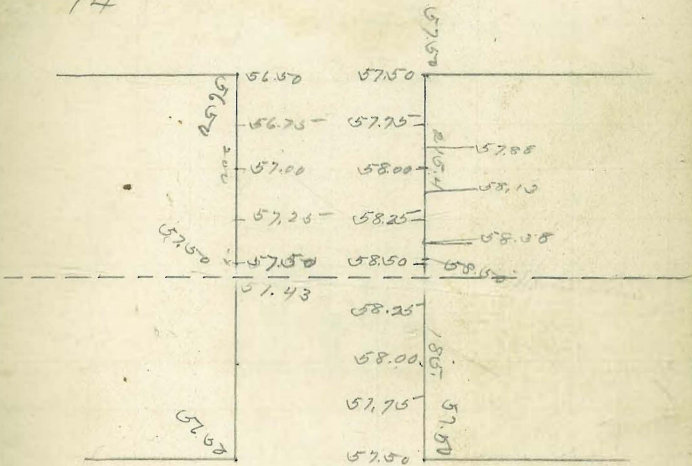 14
57.50
56.50 57.50
56.50
56.75 57.75
57.88
202 215.4
57.00 58.00
58.13
57.25 58.25
57.50
58.38
57.50 58.50 58.50
57.43
58.25
58.00
185.
57.75
57.50
56.50
57.50